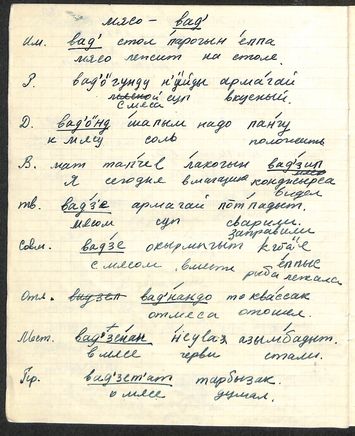 мясо – вад'
Им. вад' стол па́рогын е́ппа
мясо лежит на столе.
Р. вад'ӧгунду н'у́йды арма́гай
мясной суп вкусный.
с мяса
Д. вад'ӧнд ша́пым надо па́нгу
к мясу соль положить
В. мат тап'че́л ла́когын вад'зип
Я сегодня в магазине
видел
Тв. вад'зе арма́гай по́тпадыт.
мясом суп сварили.
заправили
Совм. вад'зе окырмы́гыт е́ппык
с мясом вместе рыба лежала
Отл. вад'нандо то ква́ссак
от мяса отошел.
Мест. вад'зе́нан н́сула азы́мбадыт.
в мясе черви стали.
Пр. вад'зет'ат тарбы́зак.
о мясе думал.